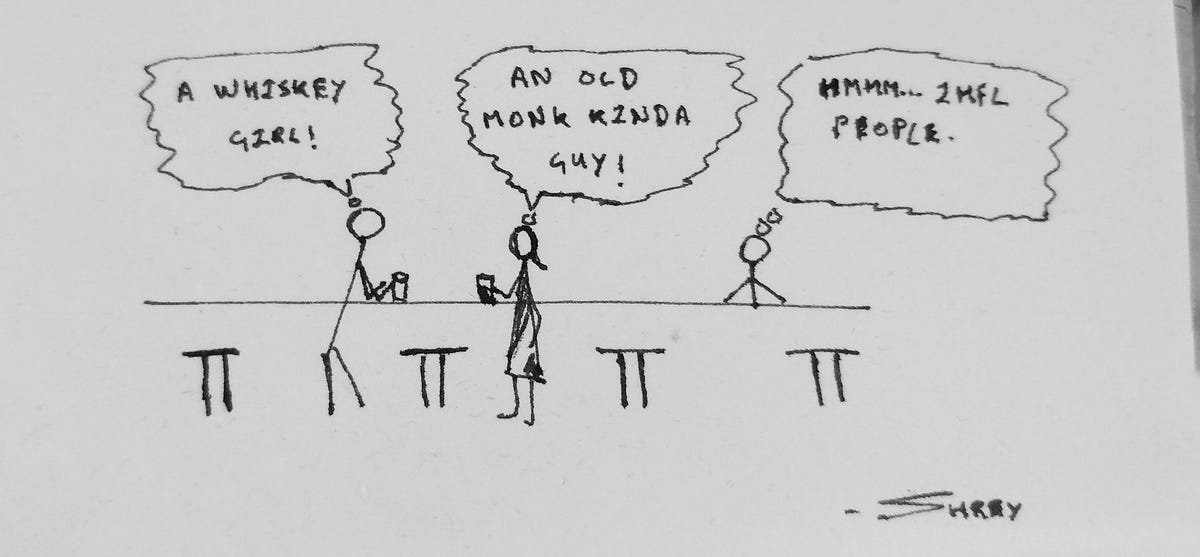 A WHISKEY
GIRL!
AN OLD
MONK KINDA
GUY!
HMMM... IMFL
PEOPLE.
- SHREY